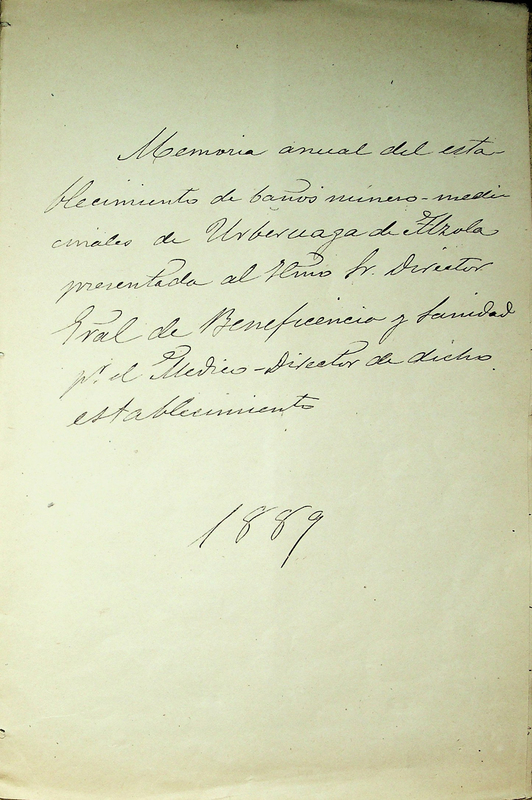 Memoria anual del esta-
blecimiento de baños minero-medi-
cinales de Urberuaga de Alzola
presentada al Ilmo Sr. Director
Gral de Beneficencia y Sanidad
pr. el Medico-Director de dicho
establecimiento
1889